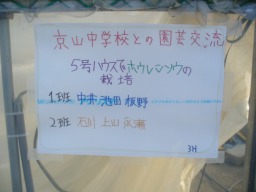 京山中学校との園芸交流
5号ハウスでホウレンソウの
栽培
1班 中井 池田 板野
2班 石川 上山 広瀬
3H